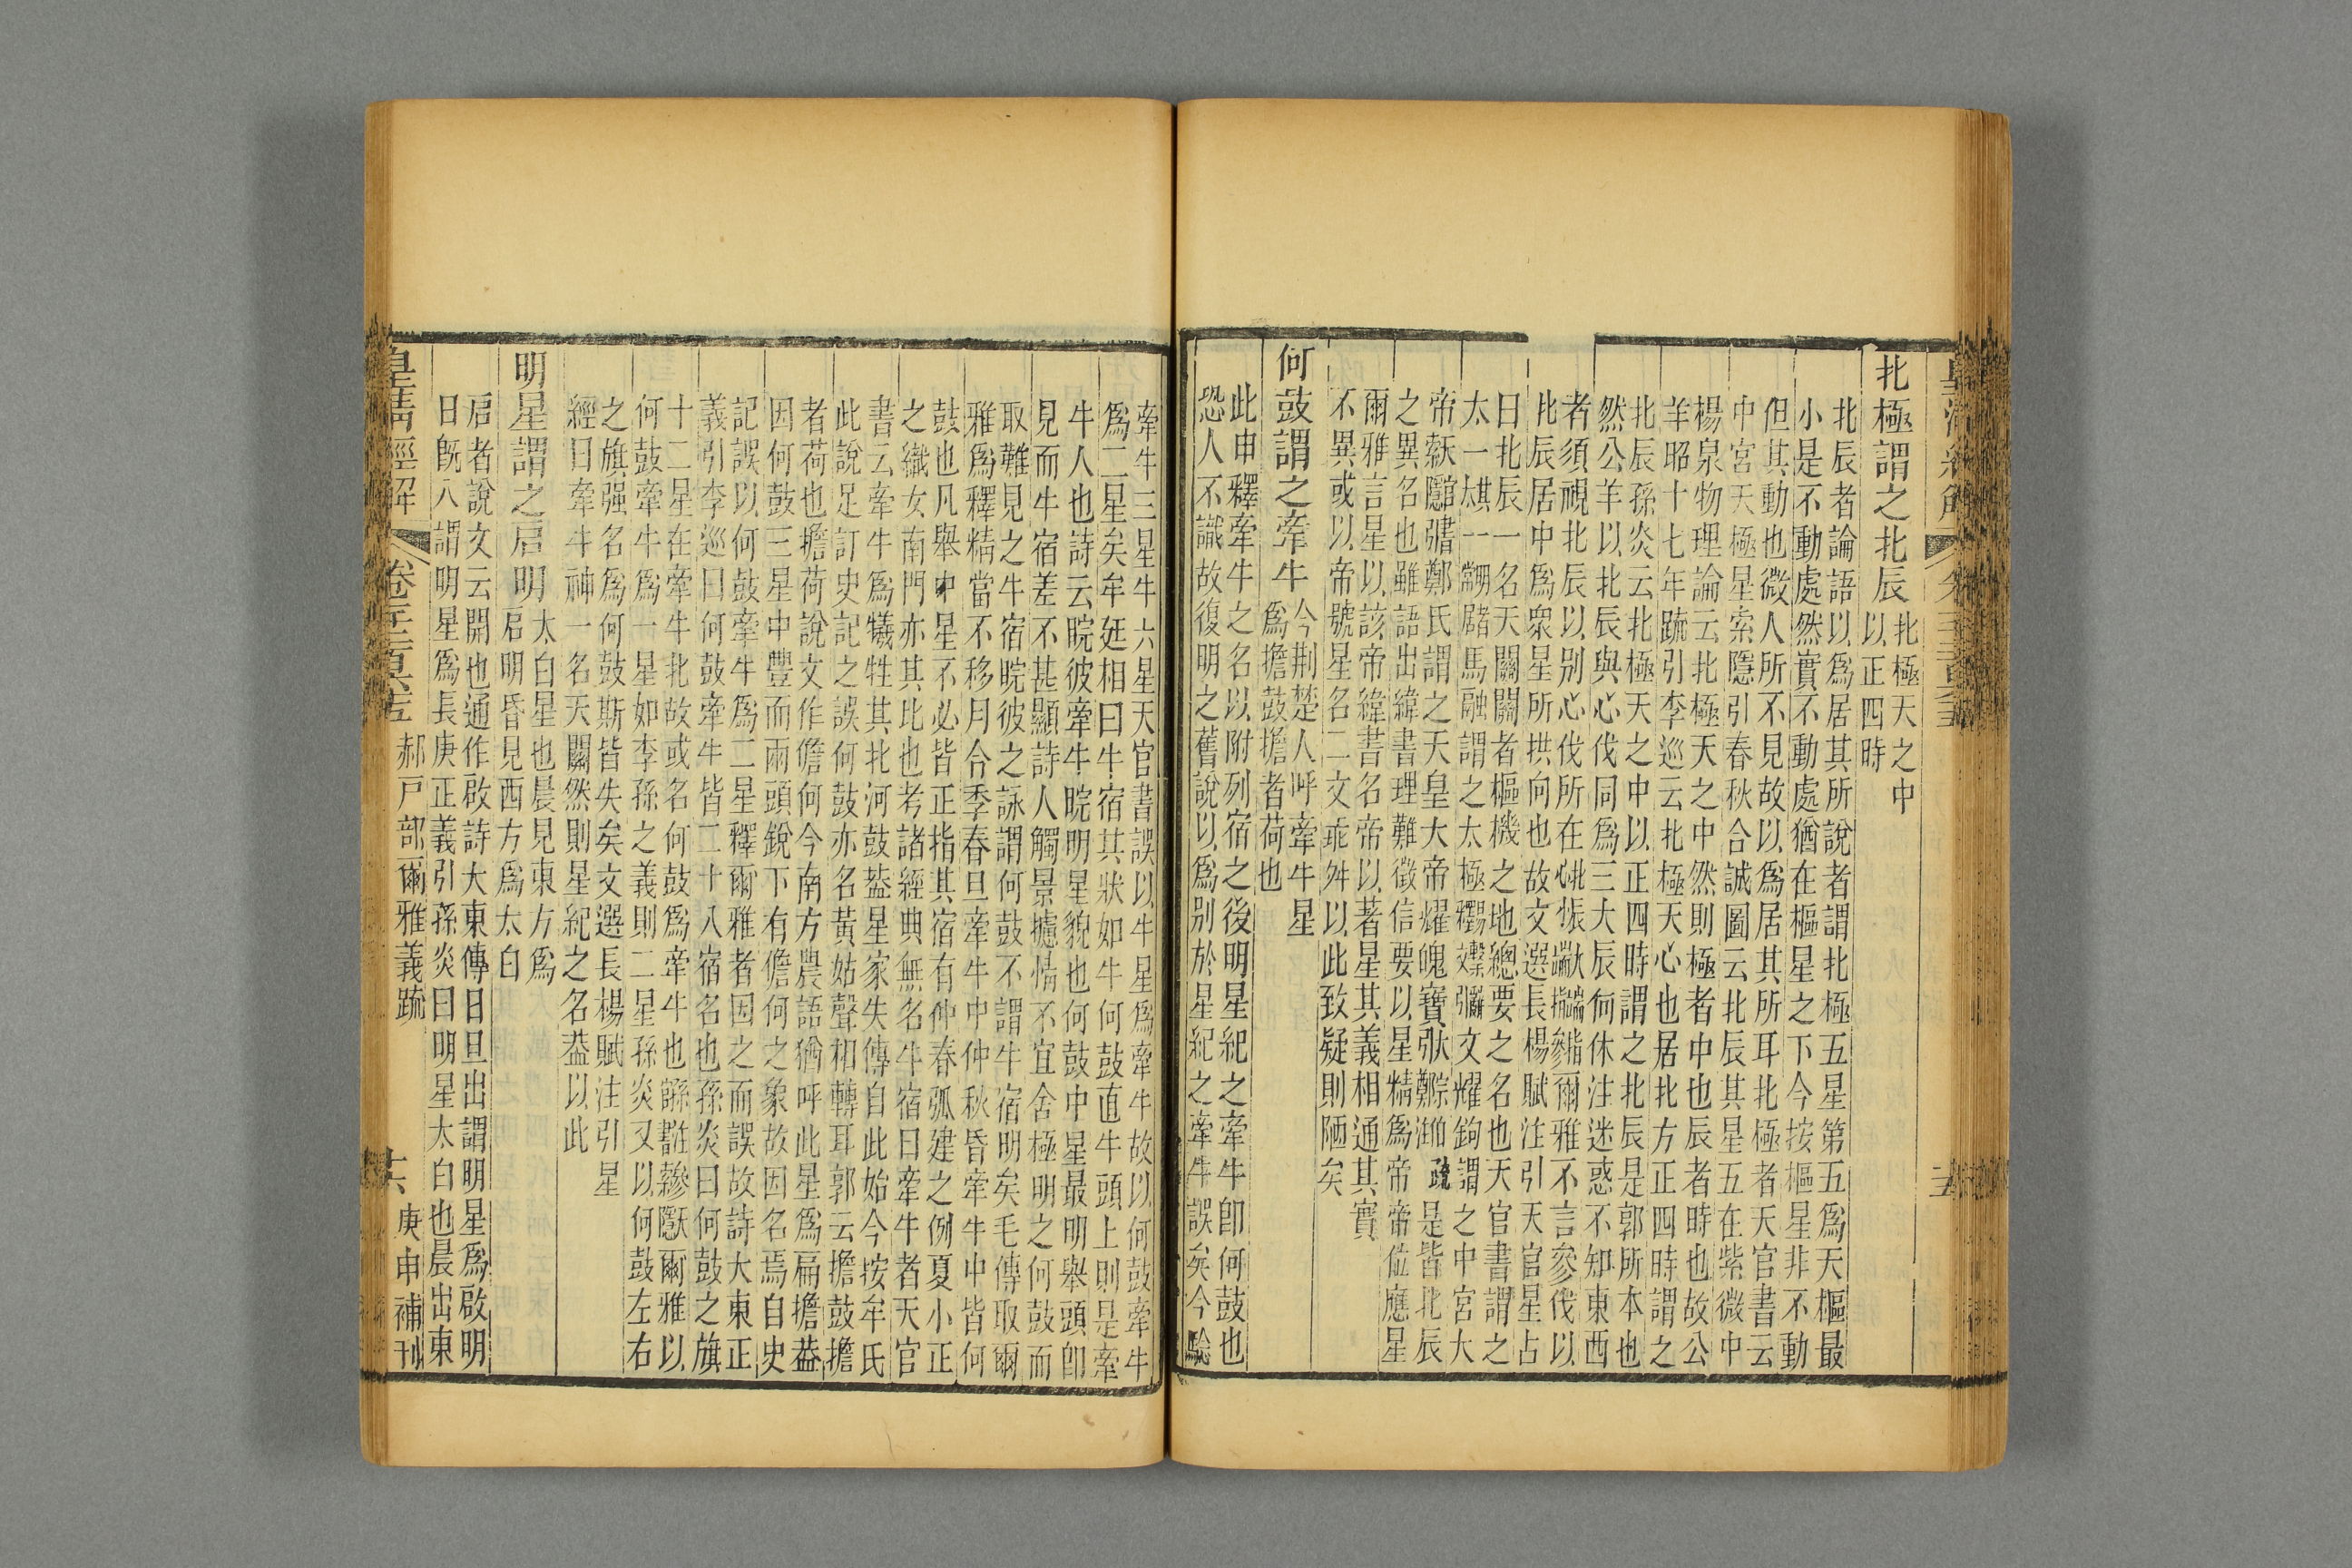 北極謂之北辰
北極天之中
以正四時
北辰者論語以爲居其所說者謂北極五星第五爲天樞最
小是不動處然實不動處猶在樞星之下今按樞星非不動
但其動也微人所不見故以爲居其所耳北極者天官書云
中宮天極星索隱引春秋合誠圖云北辰其星五在紫微中
楊泉物理論云北極天之中然則極者中也辰者時也故公
羊昭十七年疏引李巡云北極天心也居北方正四時謂之
北辰孫炎云北極天之中以正四時謂之北辰是郭所本也
然公羊以北辰與心伐同爲三大辰何休注迷惑不知東西
者須視北辰以别心伐所在
爾雅不言參伐以
北辰居中爲衆星所拱向也故文選長楊賦注引天官星占
曰北辰一名天關關者樞機之地總要之名也天官書謂之
太一
馬融謂之太極
文耀鉤謂之中宮大
帝
鄭氏謂之天皇大帝耀魄寶
疏
是皆北辰
之異名也雖語出緯書理難徵信要以星精爲帝帝位應星
爾雅言星以該帝緯書名帝以著星其義相通其實
不異或以帝號星名二文乖舛以此致疑則陋矣
何鼓謂之牽牛
今荆楚人呼牽牛星
爲擔鼓擔者荷也
此申釋牽牛之名以附列宿之後明星紀之牽牛卽何鼓也
恐人不識故復明之舊說以爲别於星紀之牽牛誤矣今驗
牽牛三星牛六星天官書誤以牛星爲牽牛故以何鼓牽牛
爲二星矣牟廷相曰牛宿其狀如牛何鼓直牛頭上則是牽
牛人也詩云睆彼牽牛睆明星貌也何鼓中星最明舉頭卽
見而牛宿差不甚顯詩人觸景攄情不宜舍極明之何鼓而
取難見之牛宿睆彼之詠謂何鼓不謂牛宿明矣毛傳取爾
雅爲釋精當不移月令季春旦牽牛中仲秋昏牽牛中皆何
鼓也凡舉中星不必皆正指其宿有仲春弧建之例夏小正
之織女南門亦其比也考諸經典無名牛宿曰牽牛者天官
書云牽牛爲犧牲其北河鼓葢星家失傳自此始今按牟氏
此說足訂史記之誤何鼓亦名黃姑聲相轉耳郭云擔鼓擔
者荷也擔荷說文作儋何今南方農語猶呼此星爲扁擔葢
因何鼓三星中豐而兩頭銳下有儋何之象故因名焉自史
記誤以何鼓牽牛爲二星釋爾雅者因之而誤故詩大東正
義引李巡曰何鼓牽牛皆二十八宿名也孫炎曰何鼓之旗
十二星在牽牛北故或名何鼓爲牽牛也
爾雅以
何鼓牽牛爲一星如李孫之義則二星孫炎又以何鼓左右
之旗强名爲何鼓斯皆失矣文選長楊賦注引星
經曰牽牛神一名天關然則星紀之名葢以此
明星謂之启明
太白星也晨見東方爲
启明昏見西方爲太白
启者說文云開也通作啟詩大東傳曰旦出謂明星爲啟明
日旣入謂明星爲長庚正義引孫炎曰明星太白也晨出東
皇清經解
郝戸部爾雅義疏
庚申補刊